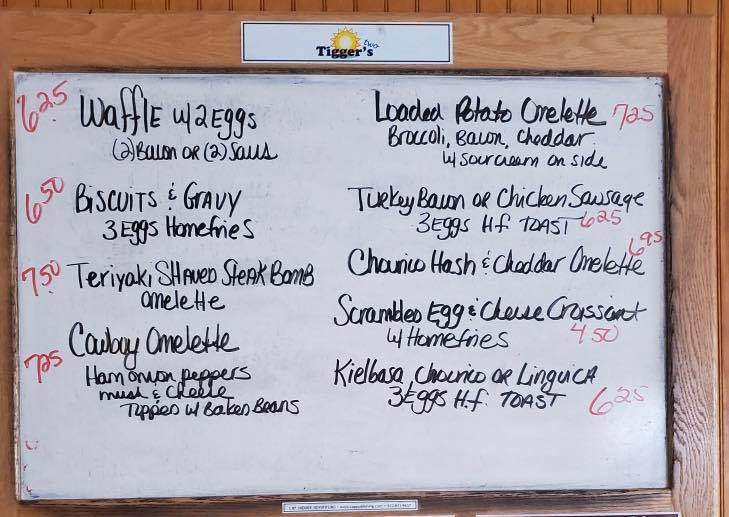 Tigger's two
6.25 Waffle w/ 2 Eggs
(2) Bacon or (2) Saus
6.50 Biscuits & Gravy
3 Eggs Homefries
7.50 Teriyaki Shaved Steak Bomb
omelette
Cowboy Omelette
7.25 Ham onion peppers
mush & Cheese
Topped w/ Baked Beans
Loaded Potato Omelette 7.25
Broccoli, Bacon, Cheddar
w/ sour cream on side
Turkey Bacon or Chicken Sausage
3 Eggs H.f TOAST 6.25
Chourico Hash & Cheddar Omelette 6.95
Scrambled Egg & Cheese Croissant
w/ Homefries 4.50
Kielbasa, Chourico or Linguica
3 Eggs H.f. TOAST 6.25